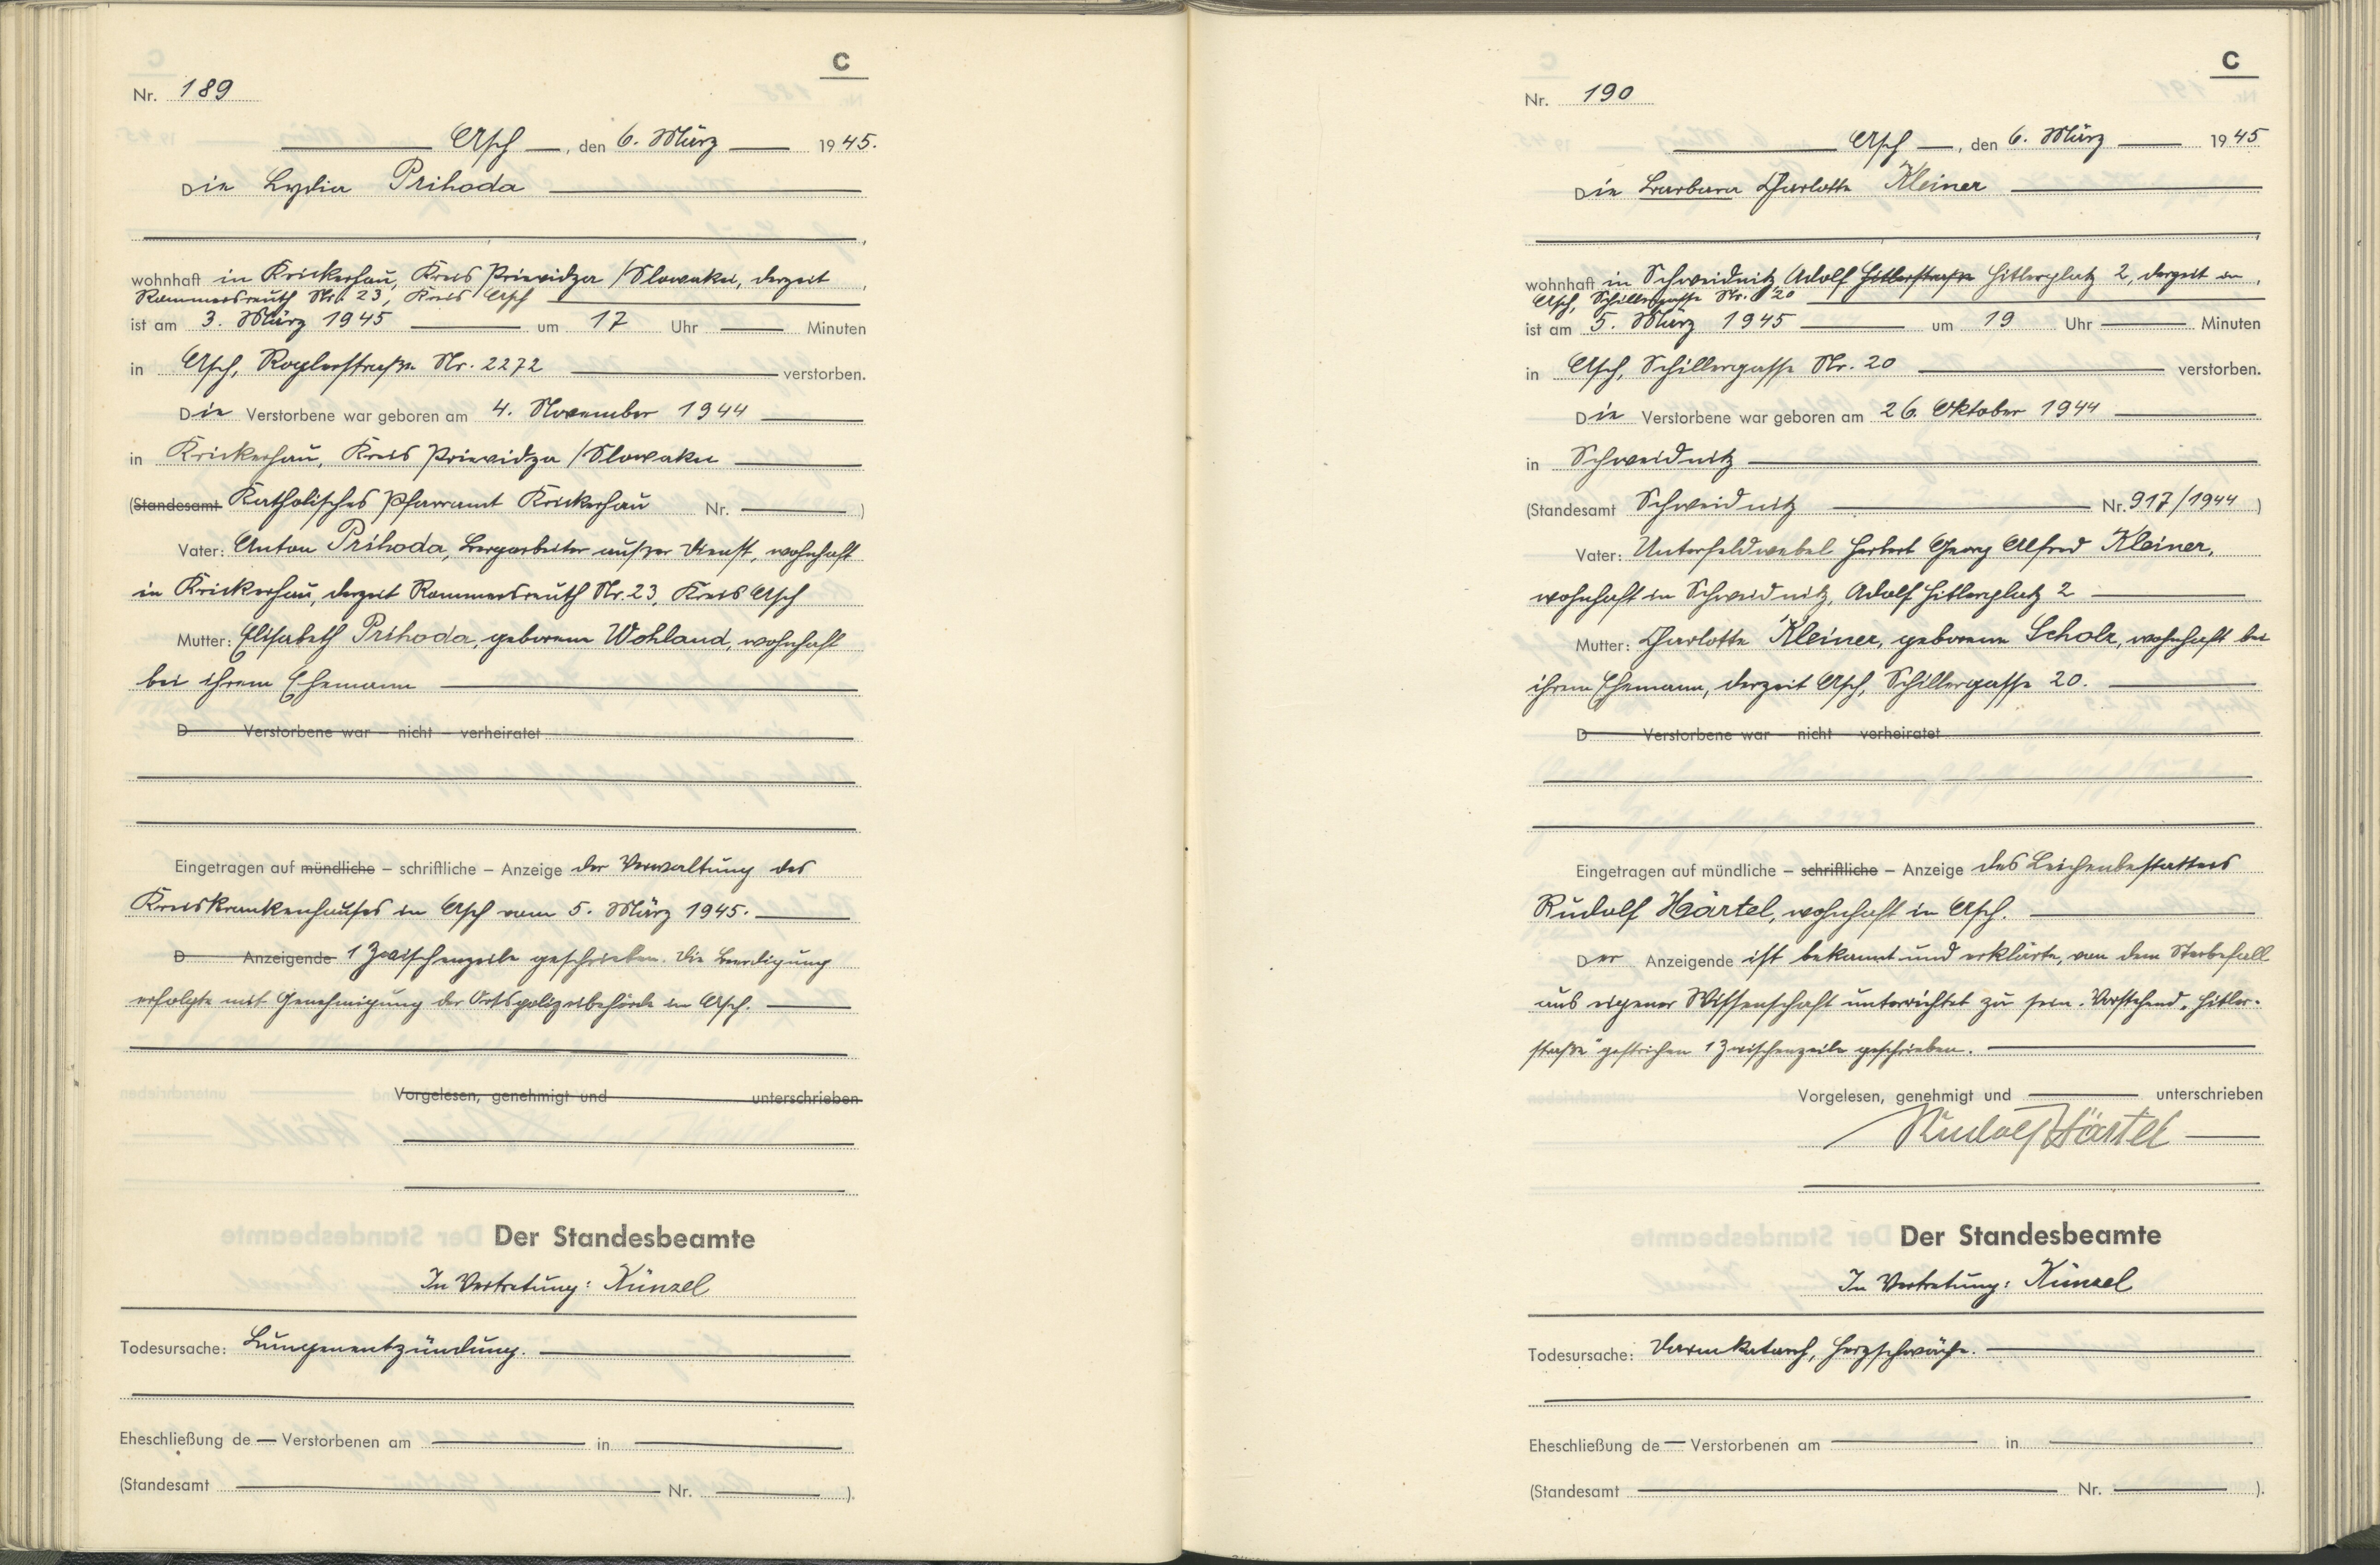 C
Nr. 189
Asch, den 6. März 1945.
Die Lydia Prihoda
wohnhaft in Krickerhau, Kreis Priewidza / Slowakei, derzeit
Rommersreuth Nr. 23, Kreis Asch
ist am 3. März 1945 um 17 Uhr Minuten
in Asch, Roglerstraße Nr. 2272 verstorben.
Die Verstorbene war geboren am 4. November 1944
in Krickerhau, Kreis Priewidza / Slowakei
(Standesamt Katholisches Pfarramt Krickerhau Nr. )
Vater: Anton Prihoda, Bergarbeiter außer Dienst, wohnhaft
in Krickerhau, derzeit Rommersreuth Nr. 23, Kreis Asch
Mutter: Elisabeth Prihoda, geborene Wohland, wohnhaft
bei ihrem Ehemann
D Verstorbene war – nicht – verheiratet
Eingetragen auf mündliche – schriftliche – Anzeige der Verwaltung des
Kreiskrankenhauses in Asch vom 5. März 1945.
D Anzeigende 1 Zwischenzeile geschrieben. Die Beerdigung
erfolgte mit Genehmigung der Ortspolizeibehörde in Asch.
Vorgelesen, genehmigt und unterschrieben
Der Standesbeamte
In Vertretung: Künzel
Todesursache: Lungenentzündung.
Eheschließung de Verstorbenen am in
(Standesamt Nr. ).
C
Nr. 190
Asch, den 6. März 1945
Die Barbara Charlotte Kleiner
wohnhaft in Schweidnitz Adolf Hitlerstraße Hitlerplatz 2, derzeit in
Asch, Schillergasse Nr. 20
ist am 5. März 1945 um 19 Uhr Minuten
in Asch, Schillergasse Nr. 20 verstorben.
Die Verstorbene war geboren am 26. Oktober 1944
in Schweidnitz
(Standesamt Schweidnitz Nr. 917/1944 )
Vater: Unterfeldwebel Herbert Georg Alfred Kleiner,
wohnhaft in Schweidnitz, Adolf Hitlerplatz 2
Mutter: Charlotte Kleiner, geborene Scholz, wohnhaft bei
ihrem Ehemann, derzeit Asch, Schillergasse 20.
D Verstorbene war – nicht – verheiratet
Eingetragen auf mündliche – schriftliche – Anzeige des Leichenbestatters
Rudolf Härtel, wohnhaft in Asch.
Der Anzeigende ist bekannt und erklärte, von dem Sterbefall
aus eigener Wissenschaft unterrichtet zu sein. Vorstehend „Hitler-
straße" gestrichen 1 Zwischenzeile geschrieben.
Vorgelesen, genehmigt und unterschrieben
Rudolf Härtel
Der Standesbeamte
In Vertretung: Künzel
Todesursache: Darmkatarrh, Herzschwäche.
Eheschließung de Verstorbenen am in
(Standesamt Nr. ).